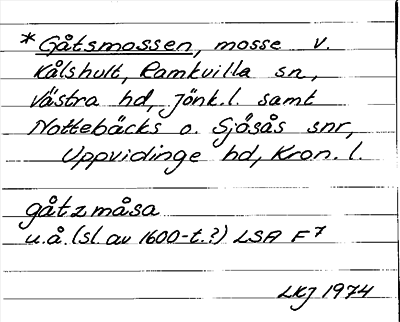 *Gåtsmossen, mosse v.
Kålshult, Ramkvilla sn,
Västra hd, Jönk.l. samt
Nottebäcks o. Sjösås snr,
Uppvidinge hd, Kron. l.
gåtzmåsa
u.å. (sl. av 1600-t.?) LSA F7
LKJ 1974